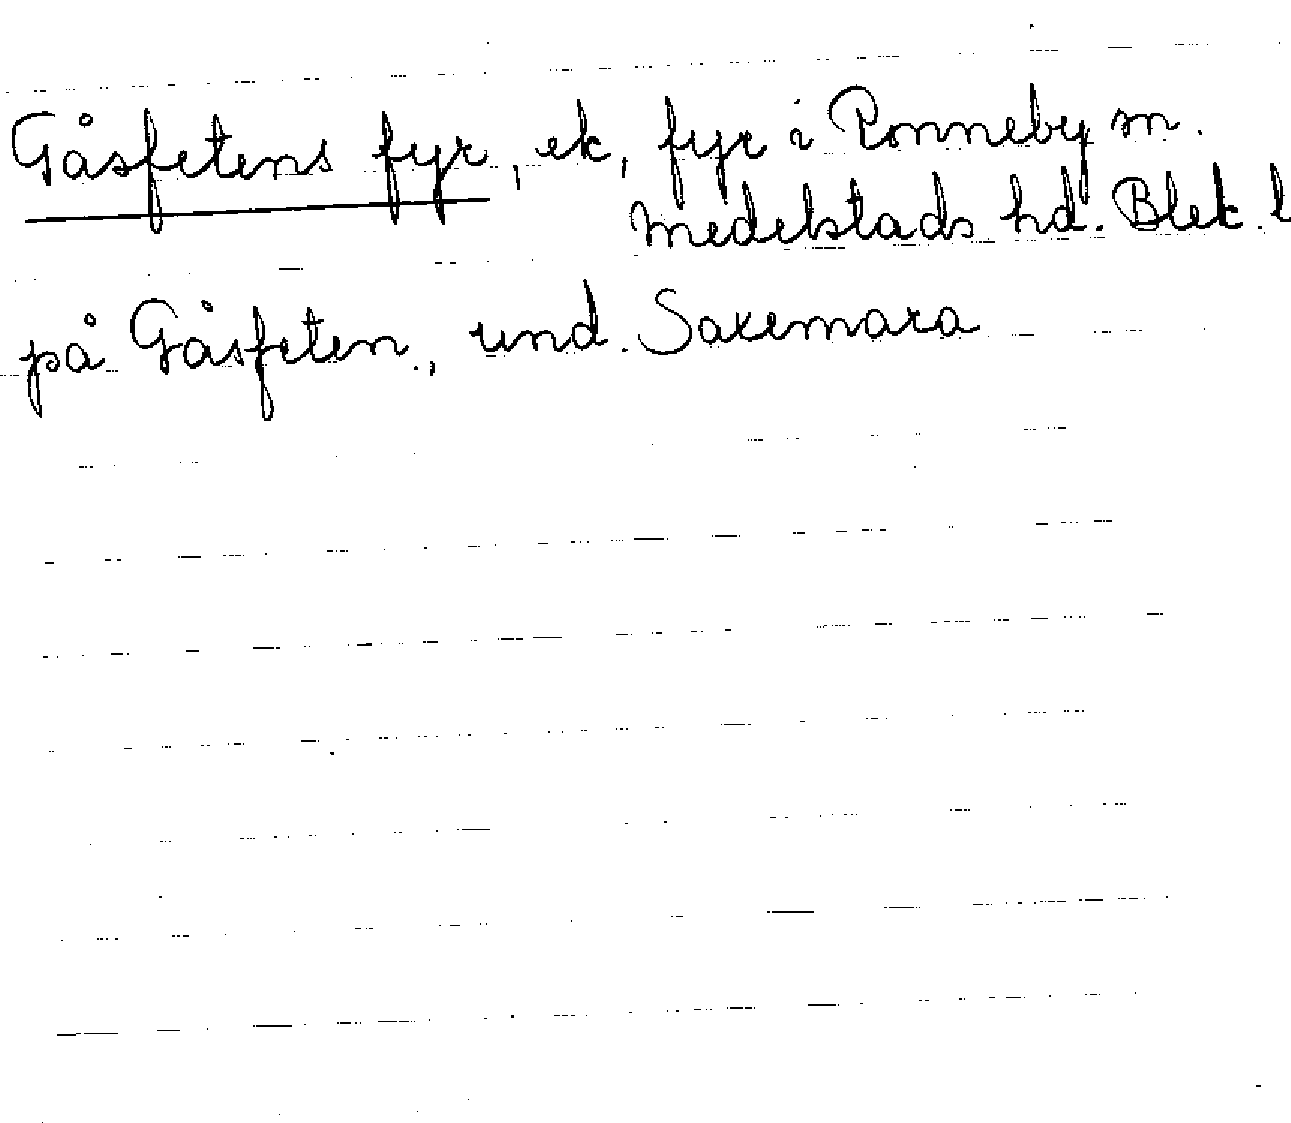 Gåsfetens fyr, ek, fyr i Ronneby sn.
Medelstads hd. Blek. l
på Gåsfeten., und. Saxemara